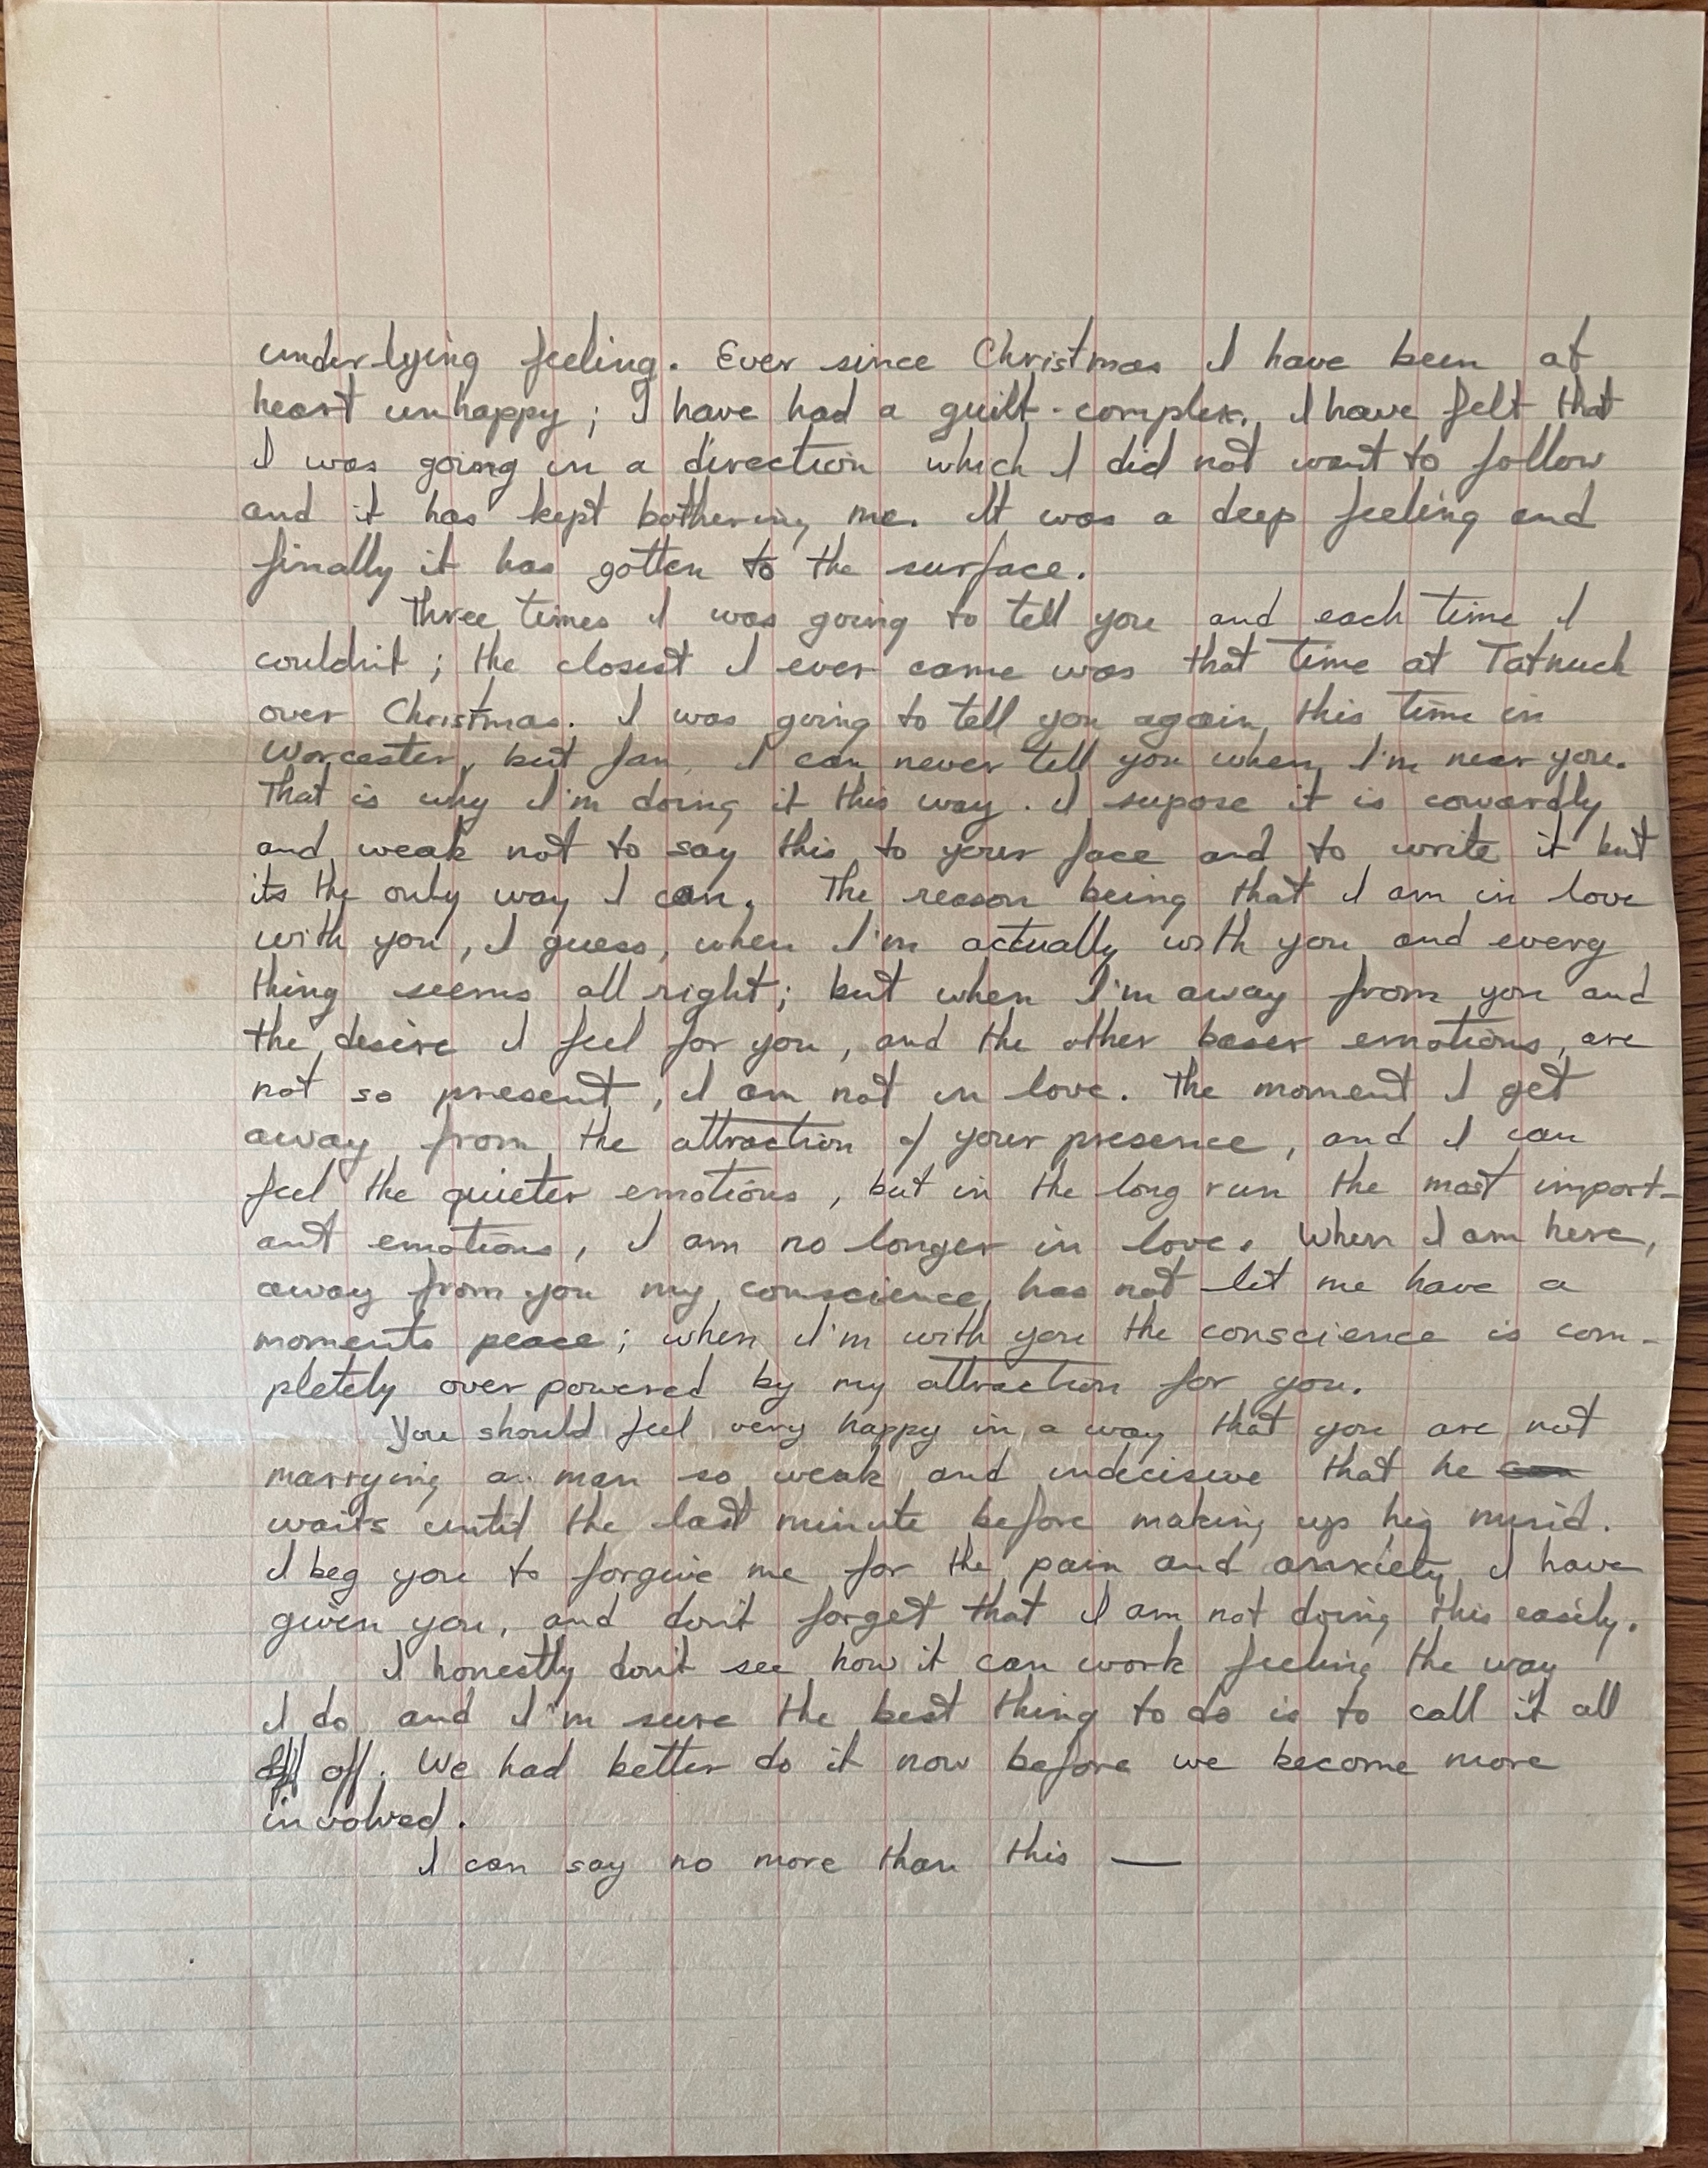 underlying feeling. Ever since Christmas I have been at
heart unhappy; I have had a guilt-complex. I have felt that
I was going in a direction which I did not want to follow
and it has kept bothering me. It was a deep feeling and
finally it has gotten to the surface.
Three times I was going to tell you and each time I
couldn't; the closest I ever came was that time at Tatnuck
over Christmas. I was going to tell you again, this time in
Worcester, but Jan, I can never tell you when I'm near you.
That is why I'm doing it this way. I supose it is cowardly
and weak not to say this to your face and to write it but
its the only way I can. The reason being that I am in love
with you, I guess, when I'm actually with you and every
thing seems all right; but when I'm away from you and
the desire I feel for you, and the other baser emotions, are
not so present, I am not in love. The moment I get
away from the attraction of your presence, and I can
feel the quieter emotions, but in the long run the most import-
ant emotions, I am no longer in love. When I am here,
away from you my conscience has not let me have a
moments peace; when I'm with you the conscience is com-
pletely overpowered by my attraction for you.
You should feel very happy in a way that you are not
marrying a man so weak and indecisive that he
waits until the last minute before making up his mind.
I beg you to forgive me for the pain and anxiety I have
given you, and don't forget that I am not doing this easily.
I honestly don't see how it can work feeling the way
I do and I'm sure the best thing to do is to call it all
off. We had better do it now before we become more
involved.
I can say no more than this —